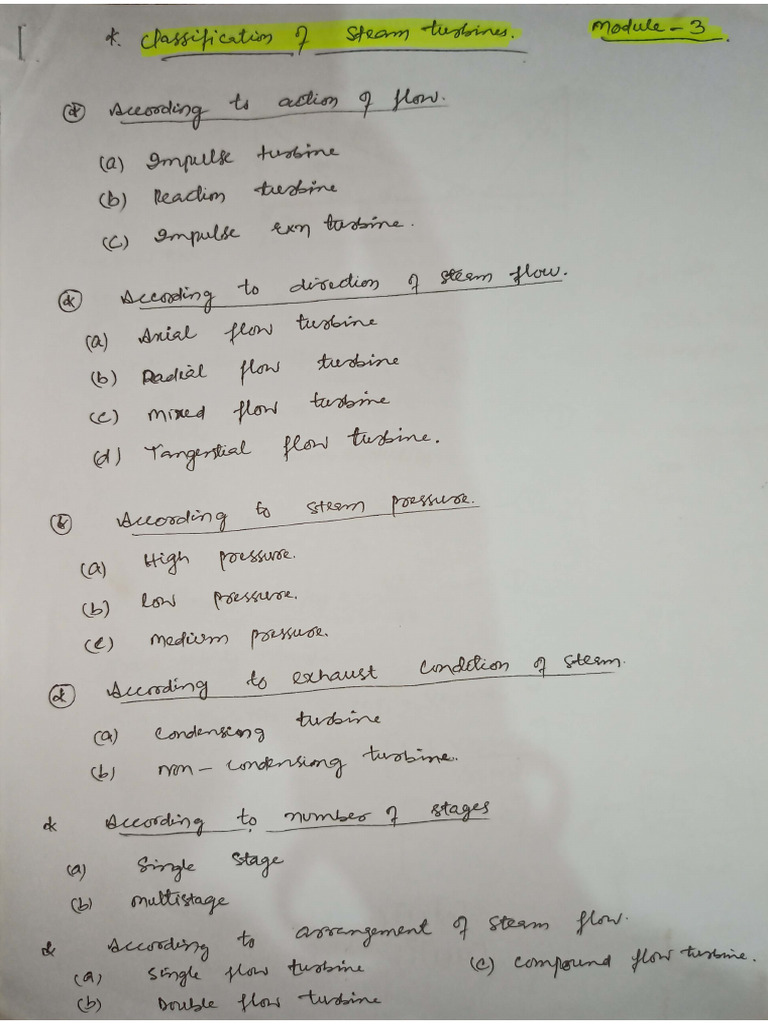 * Classification of Steam turbines. Module-3
* According to action of flow.
(a) Impulse turbine
(b) Reaction turbine
(c) Impulse rxn turbine.
* According to direction of steam flow.
(a) Axial flow turbine
(b) Radial flow turbine
(c) Mixed flow turbine
(d) Tangential flow turbine.
* According to steam pressure.
(a) High pressure.
(b) Low pressure.
(c) Medium pressure.
* According to exhaust condition of steam.
(a) Condensing turbine
(b) Non-condensing turbine.
* According to number of stages
(a) Single stage
(b) Multistage
* According to arrangement of steam flow.
(a) Single flow turbine (c) Compound flow turbine.
(b) Double flow turbine